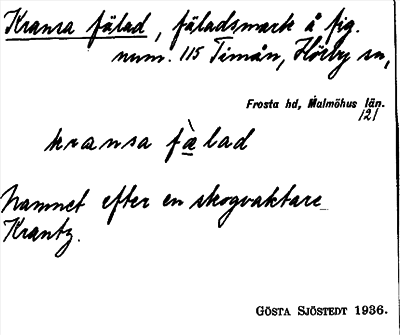 Kransa fälad, fäladsmark å fig.
num. 115 Timån, Hörby sn,
Frosta hd, Malmöhus län.
121
kransa fà̱lad
Namnet efter en skogvaktare
Krantz.
GÖSTA SJÖSTEDT 1936.